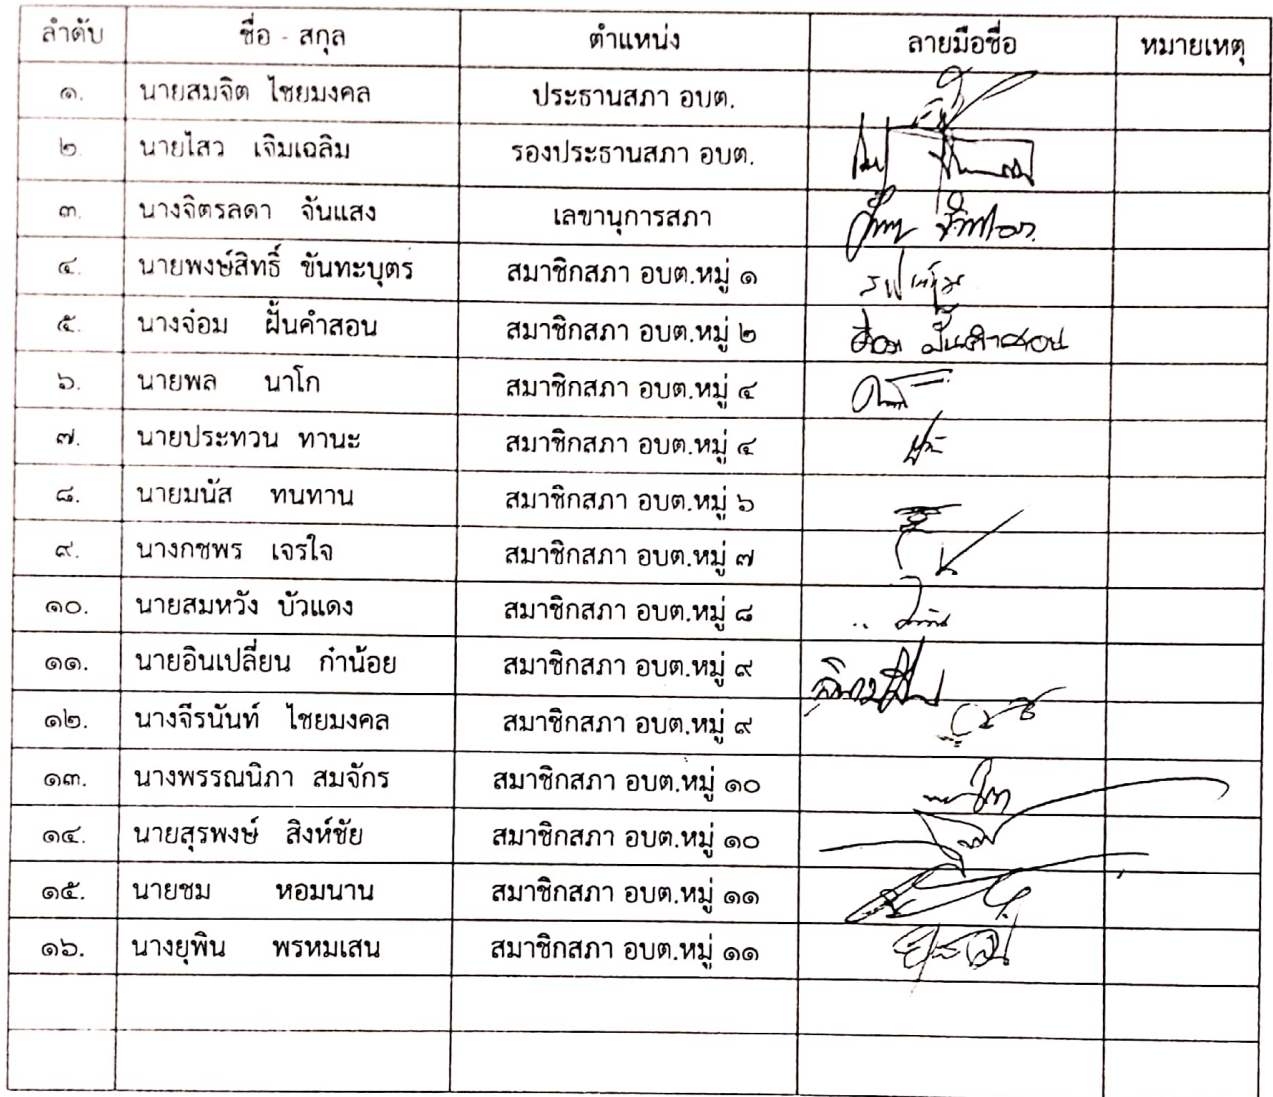 ลำดับ ชื่อ - สกุล ตำแหน่ง ลายมือชื่อ หมายเหตุ
๑. นายสมจิต ไชยมงคล ประธานสภา อบต.
๒. นายไสว เจิมเฉลิม รองประธานสภา อบต.
๓. นางจิตรลดา จันแสง เลขานุการสภา
๔. นายพงษ์สิทธิ์ ขันทะบุตร สมาชิกสภา อบต.หมู่ ๑
๕. นางจ๋อม ฝั้นคำสอน สมาชิกสภา อบต.หมู่ ๒ จ๋อม ฝั้นคำสอน
๖. นายพล นาโก สมาชิกสภา อบต.หมู่ ๔
๗. นายประทวน ทานะ สมาชิกสภา อบต.หมู่ ๔
๘. นายมนัส ทนทาน สมาชิกสภา อบต.หมู่ ๖
๙. นางกชพร เจรใจ สมาชิกสภา อบต.หมู่ ๗
๑๐. นายสมหวัง บัวแดง สมาชิกสภา อบต.หมู่ ๘
๑๑. นายอินเปลี่ยน ก๋าน้อย สมาชิกสภา อบต.หมู่ ๙
๑๒. นางจีรนันท์ ไชยมงคล สมาชิกสภา อบต.หมู่ ๙
๑๓. นางพรรณนิภา สมจักร สมาชิกสภา อบต.หมู่ ๑๐
๑๔. นายสุรพงษ์ สิงห์ชัย สมาชิกสภา อบต.หมู่ ๑๐
๑๕. นายชม หอมนาน สมาชิกสภา อบต.หมู่ ๑๑
๑๖. นางยุพิน พรหมเสน สมาชิกสภา อบต.หมู่ ๑๑